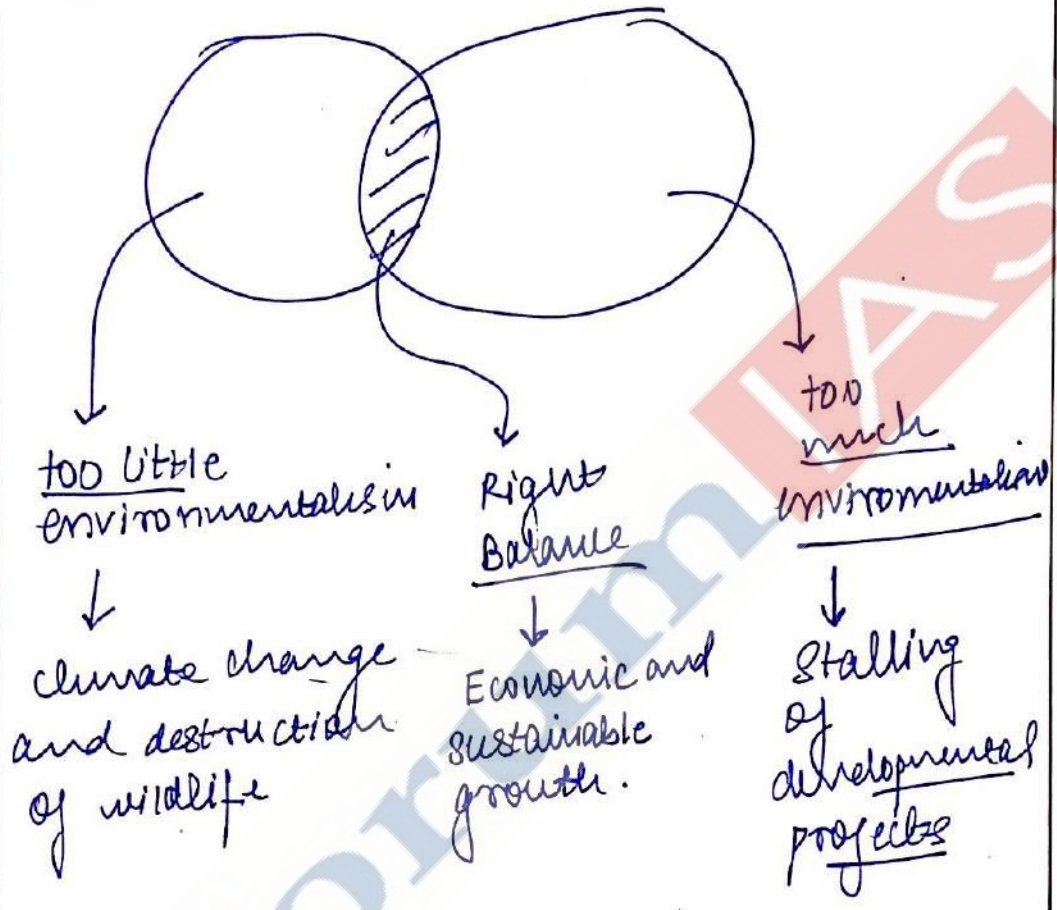 too little
environmentalism
climate change
and destruction
of wildlife
Right
Balance
Economic and
sustainable
growth.
too
much
enviromentalism
Stalling
of
developmental
projects
orumIAS